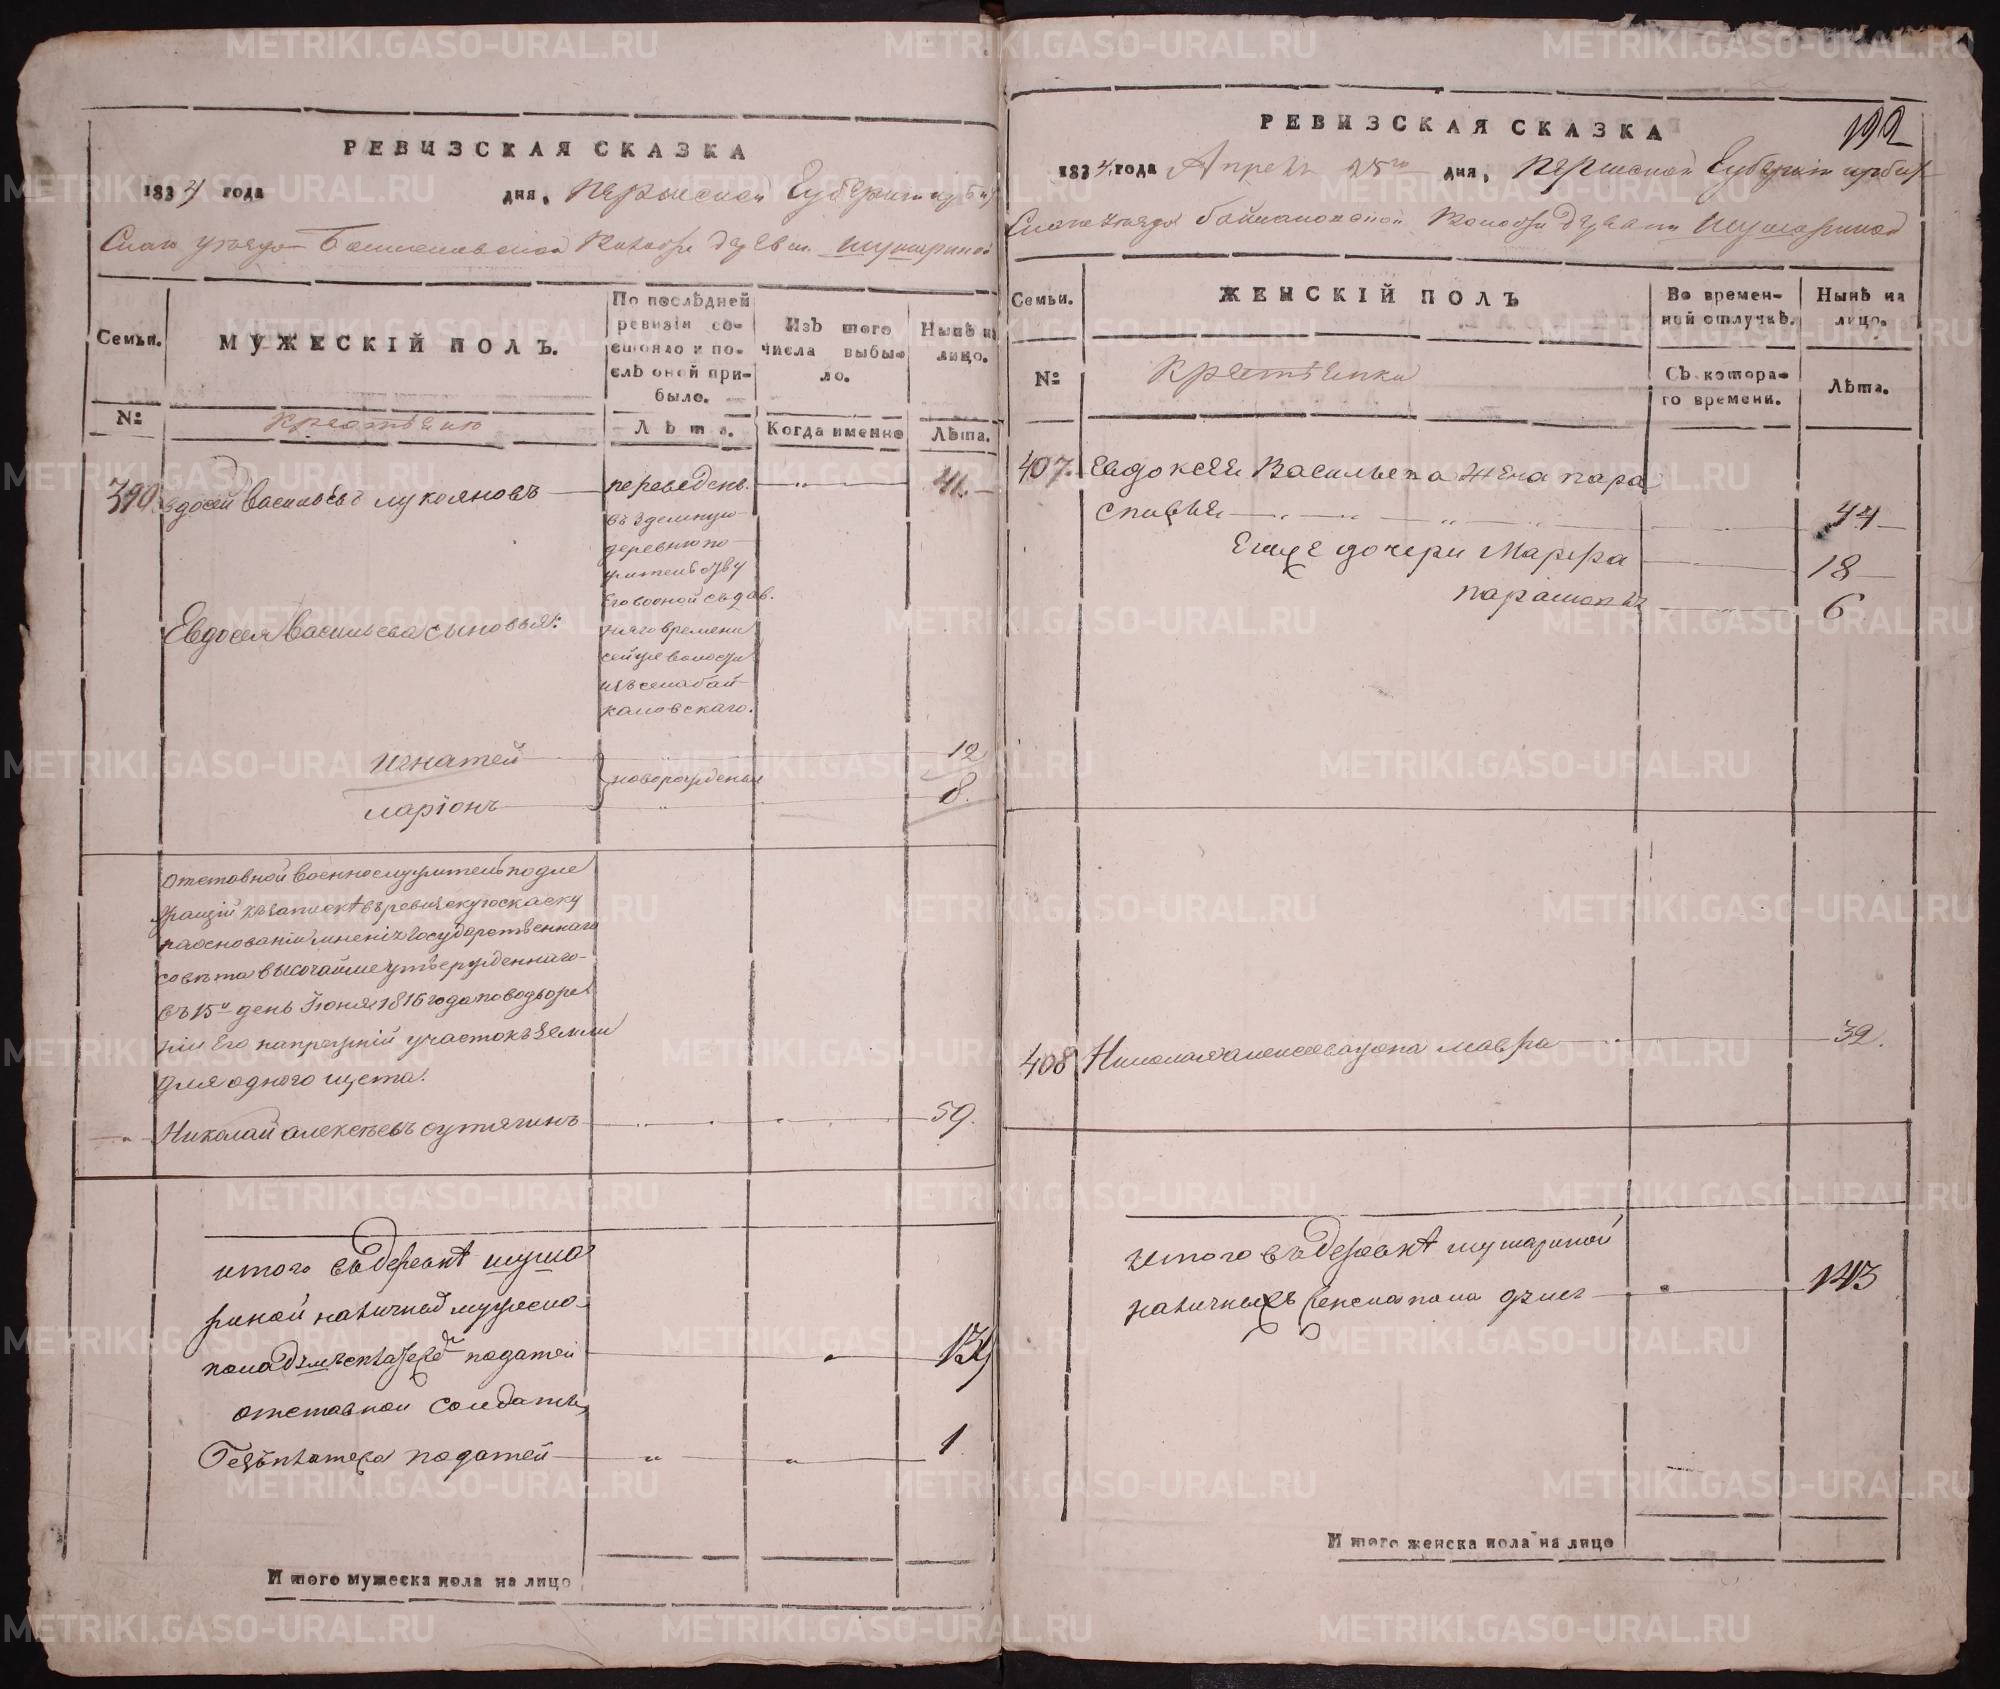 РЕВИЗСКАЯ СКАЗКА
1834 года дня, Пермской Губернии Ирбит
скаго уезда Байкаловской Волости деревни Шушариной
Семьи.
МУЖЕСКІЙ ПОЛЪ.
По послѣдней ревизіи со-
стояло и по-
слѣ оной при-
было.
Изъ того
числа выбы-
ло.
Нынѣ на
лицо.
№
Крестьяне
Лѣта.
Когда именно
Лѣта.
390. Евдокей Васильевъ Лукояновъ
переведенъ
41.
въ здешнюю
деревню по
жительству
Его во оной съ дав.
няго времени
сей же волости
изъ села бай
каловскаго.
Евдокея Васильева сыновья:
Игнатей
12
новорожденыя
ларіонъ
8.
Отставной военнослужитель подле
жащій къ записке въ ревискую скаску
на основаніи мнения государственнаго
совѣта высочайше утвержденнаго
въ 15й день Июня 1816 года по водворе
нии Его на прежній участокъ земли
для одного щета.
Николай алексеевъ сутягинъ
59.
итого въ деревнѣ шуша
риной наличнаго мужеска
пола платежу податей
отставной солдатъ
1
Безъ платежа податей
Итого мужеска пола на лицо
192
РЕВИЗСКАЯ СКАЗКА
1834 года Апреля 25го дня, Пермской Губернии ирбит
Скаго уезда байкаловской Волости деревни Шушариной
Семьи.
ЖЕНСКІЙ ПОЛЪ
Во времен-
ной отлучкѣ.
Нынѣ на
лицо.
№
Крестьянки
Съ котора-
го времени.
Лѣта.
407. Евдокея Васильева жена пара
сковья
44
Еще дочери Марфа
18
парасковья
6
408 Николая алексеева жона мавра
39.
итого въ деревнѣ шушариной
наличныхъ женска пола душъ
143
Итого женска пола на лицо
METRIKI.GASO-URAL.RU